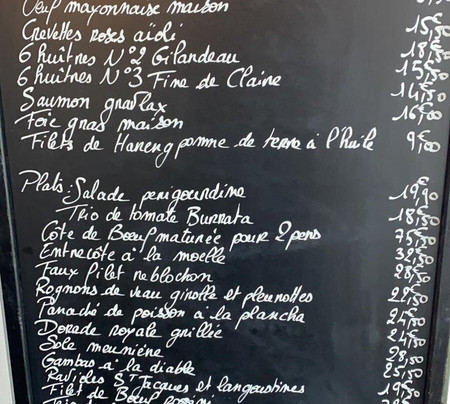 Oeuf mayonnaise maison
Crevettes roses aïoli 15,50
6 huîtres N°2 Gilardeau 18,50
6 huîtres N°3 Fine de Claire 15,50
Saumon gravlax 14,50
Foie gras maison 16,00
Filets de Hareng pomme de terre à l'huile 9,00
Plats: Salade perigourdine 19,90
Trio de tomate Burrata 18,50
Côte de Boeuf maturée pour 2 pers 75,50
Entrecôte à la moelle 32,50
Faux Filet reblochon 28,50
Rognons de veau girolle et pleurottes 22,50
Panaché de poisson à la plancha 24,50
Dorade royale grillée 24,50
Sole meunière 28,50
Gambas à la diable 25,50
Ravioles ST Jacques et langoustines 19,50
Filet de Boeuf rossini